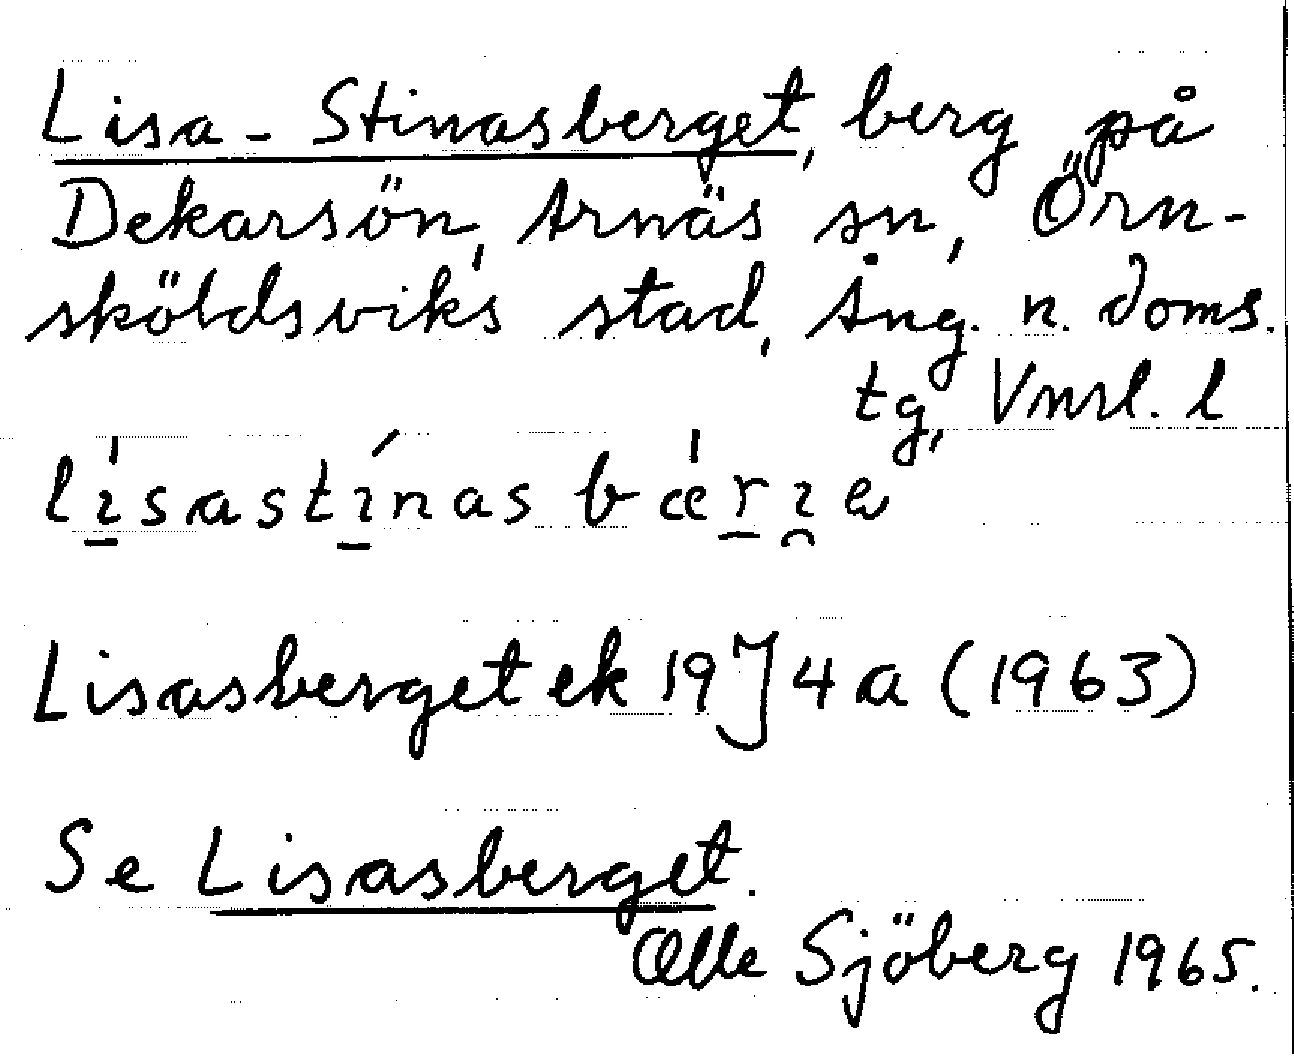 Lisa-Stinasberget, berg på
Dekarsön, Arnäs sn, Örn-
sköldsviks stad, Ång. n. doms.
tg, Vnrl. l
li̠sasti̠nas bærı̯e
Lisasberget ek 19J4a (1963)
Se Lisasberget.
Olle Sjöberg 1965.